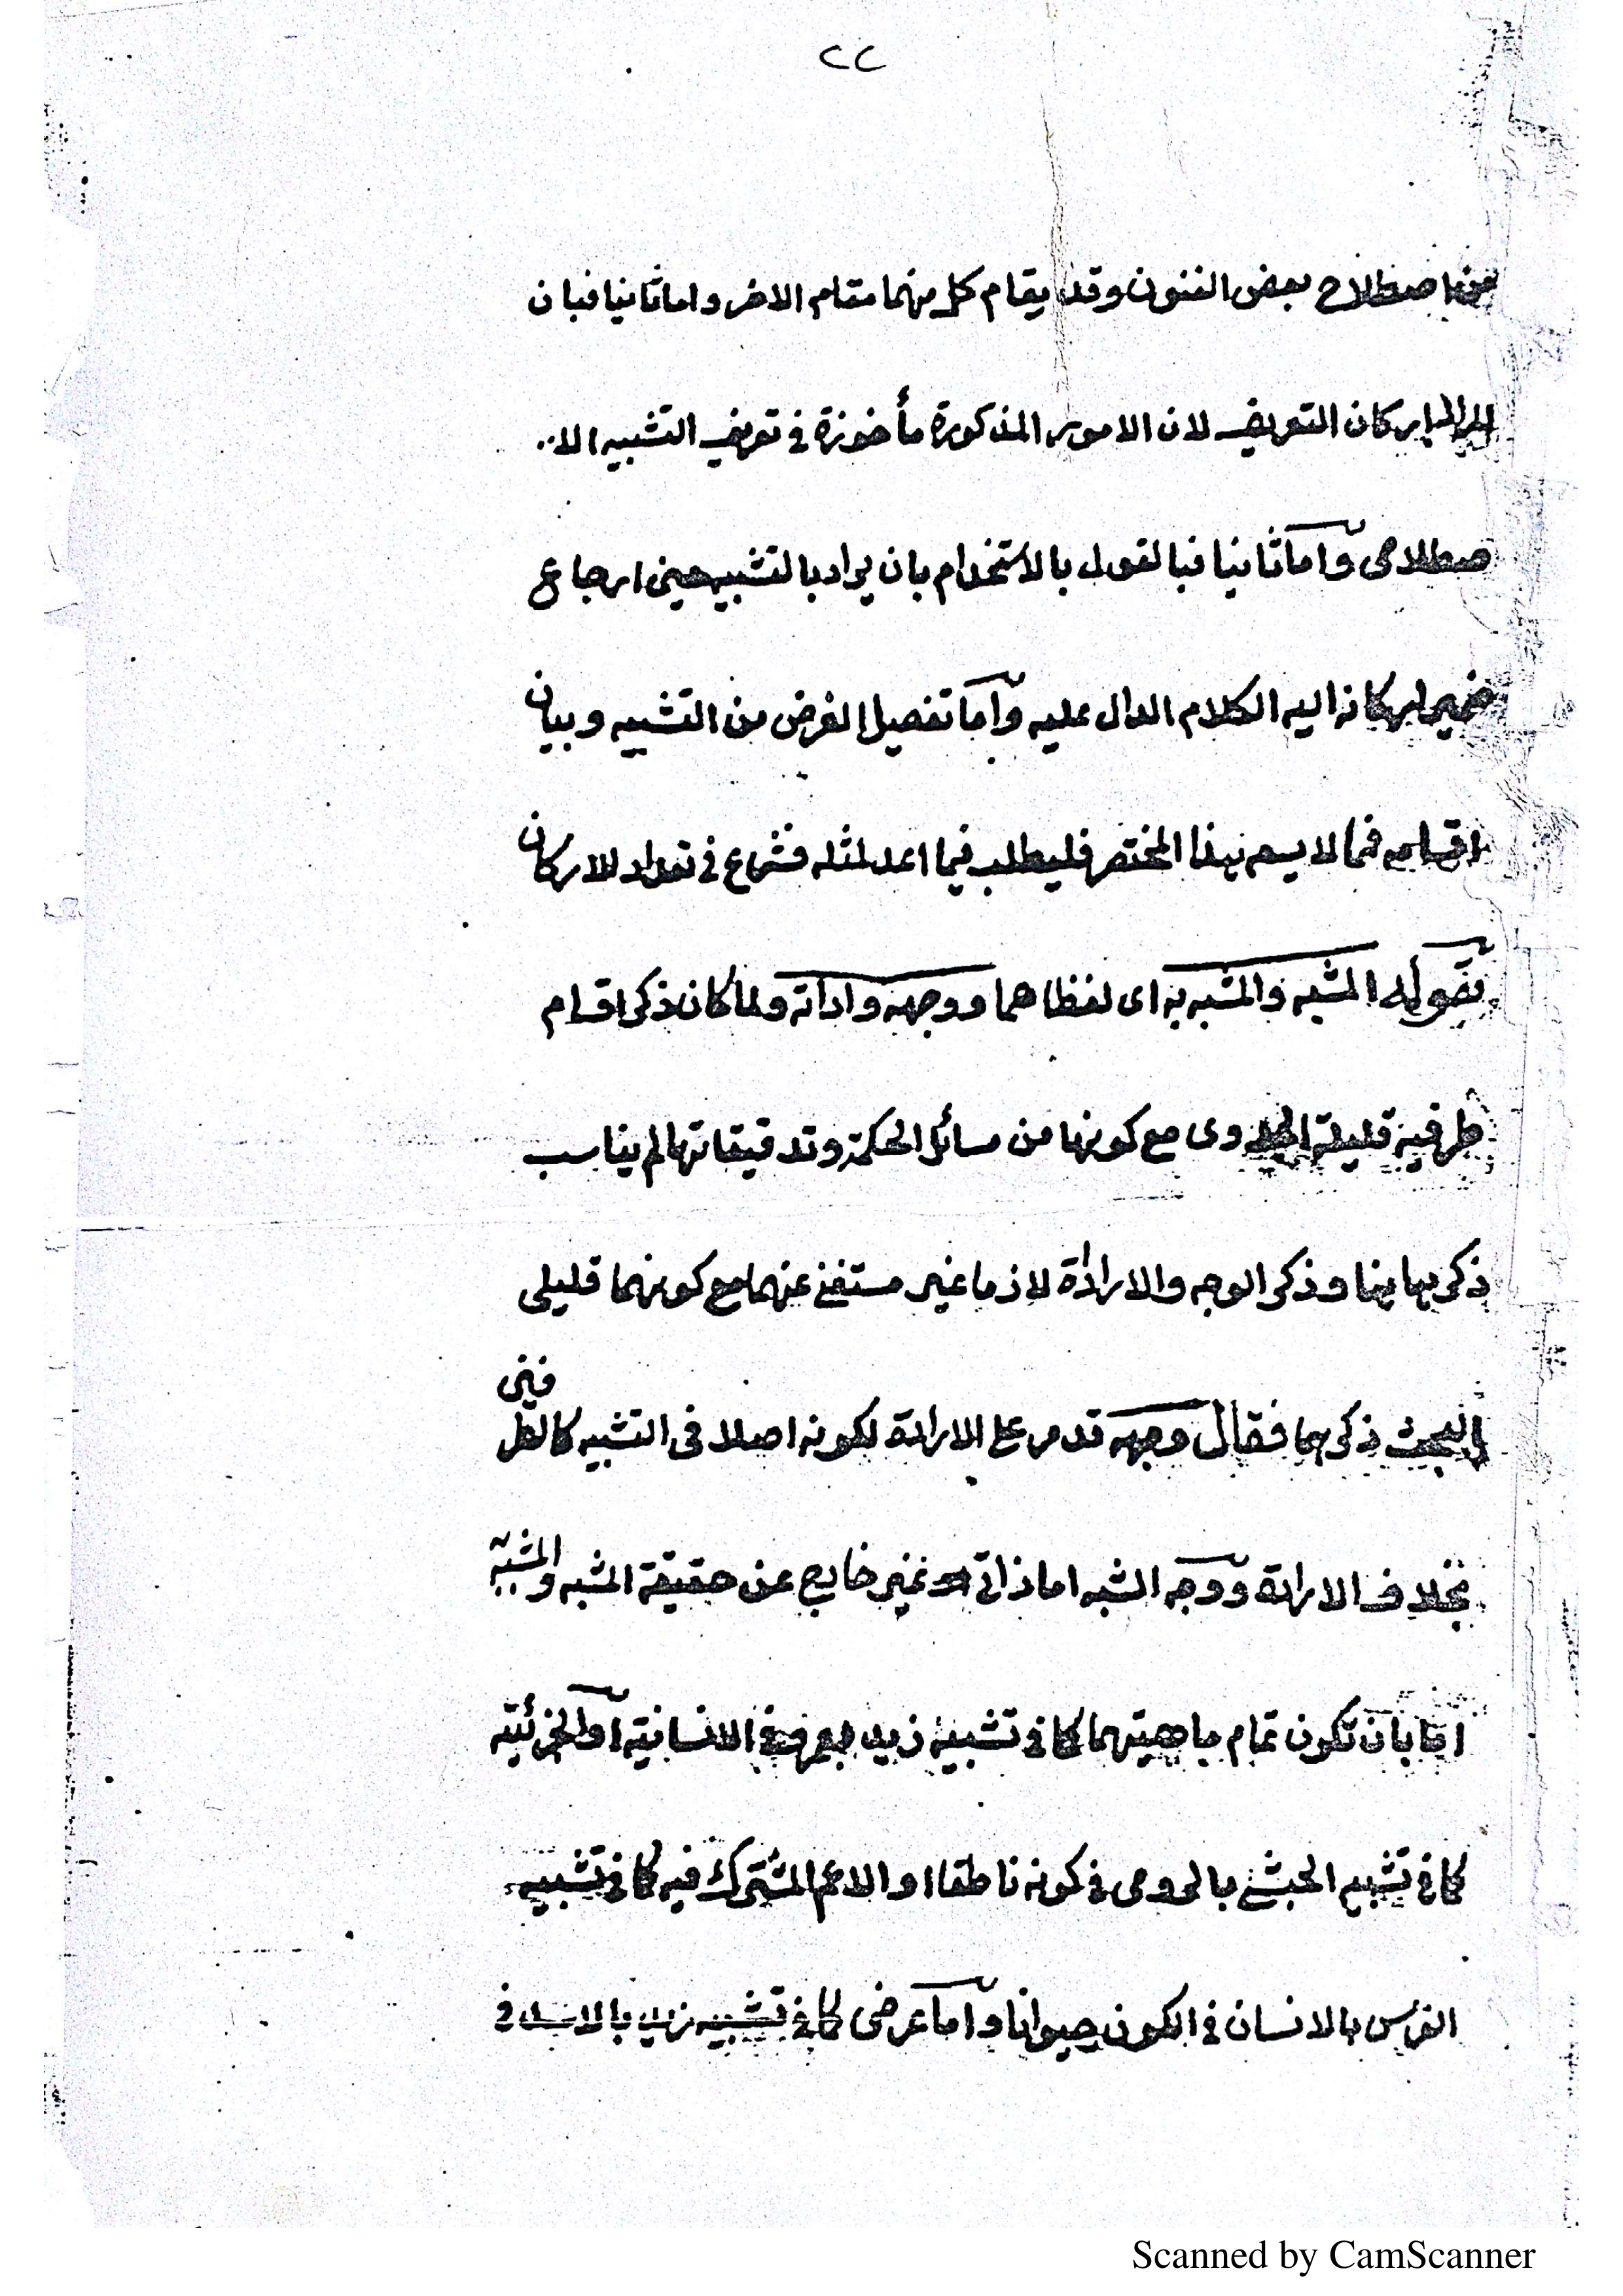 ٢٢
اصطلاح بعض الفنون وقد يقام كل منهما مقام الاخر واما ثانيا فبان
المراد باركان التعريف لان الامور المذكورة مأخوذة في تعريف التشبيه الا..
صطلاحى واما ثانيا فبالقول بالاستخدام بان يراد بالتشبيه حين ارجاع
ضمير اركانه اليه الكلام الدال عليه واما تفصيل الغرض من التشبيه وبيان
اقسامه فمما لا يسعه هذا المختصر فليطلب فيما اعد لمثله فشرع في تعداد الاركان
بقوله المشبه والمشبه به اى لفظاهما ووجهه واداته ولما كان ذكر اقسام
طرفيه قليلة الجدوى مع كونها من مسائل الحكمة وتدقيقاتها لم يناسب
ذكرها هنا وذكر الوجه والاداة لازما غير مستغنى عنهما مع كونهما قليلى
البحث ذكرهما فقال وجهه قدم على الاداة لكونه اصلا فى التشبيه كالطرفين
بخلاف الاداة ووجه الشبه اما ذاتى غير خارج عن حقيقة المشبه والمشبه به
اما بان تكون تمام ماهيتهما كما في تشبيه زيد بعمرو في الانسانية او الجزئية
كما في تشبيه الحبشى بالرومى في كونه ناطقا او الاعم المشترك فيه كما في تشبيه
الفرس بالانسان في الكون حيوانا واما عرضى كما في تشبيه زيد بالاسد في
Scanned by CamScanner